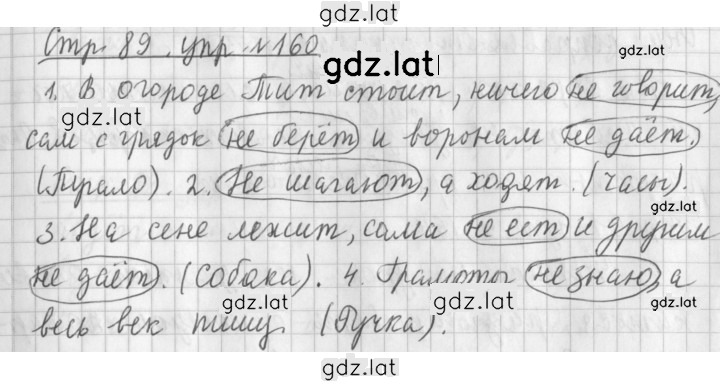 gdz.lat
Стр. 89, упр. №160
gdz.lat
gdz.lat
1. В огороде Тит стоит, ничего не говорит,
gdz.lat
сам с грядок не берёт и воронам не даёт.
(Пугало). 2. Не шагают, а ходят. (Часы).
gdz.lat
gdz.lat
3. На сене лежит, сама не ест и другим
не даёт. (Собака). 4. Грамоты не знаю, а
gdz.lat
gdz.lat
gdz.lat
весь век пишу. (Ручка).
gdz.lat